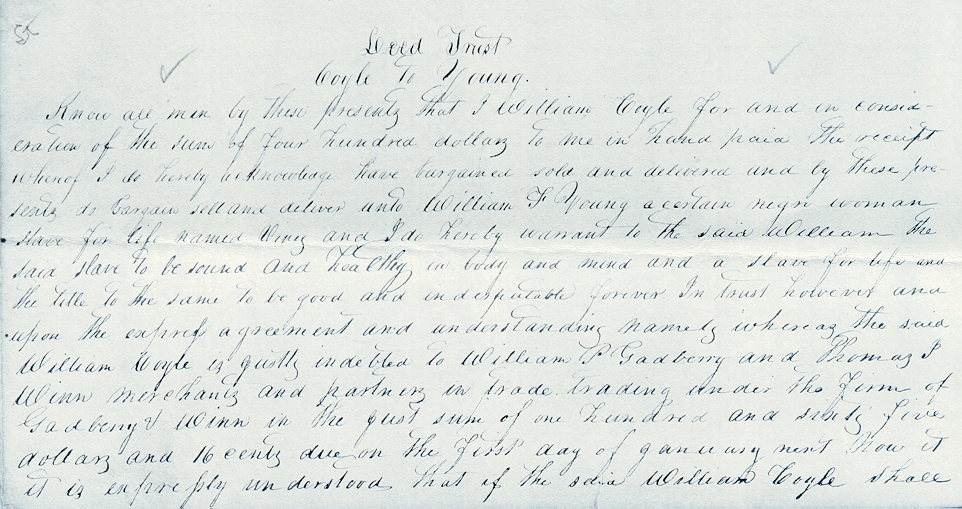 55
Deed Trust
Coyle To Young.
Know all men by these presents that I William Coyle for and in consid-
eration of the sum of four hundred dollars to me in hand paid the receipt
whereof I do hereby acknowledge have bargained sold and delivered and by these pre-
sents do bargain sell and deliver unto William F Young a certain negro woman
slave for life named and I do hereby warrant to the said William the
said slave to be sound and healthy in body and mind and a slave for life and
the title to the same to be good and indisputable forever In trust however and
upon the express agreement and understanding namely whereas the said
William Coyle is justly indebted to William P Gadberry and Thomas J
Winn merchants and partners in trade trading under the firm of
Gadberry & Winn in the just sum of one hundred and sixty five
dollars and 16 cents due on the first day of January next Now it
it is expressly understood that if the said William Coyle shall